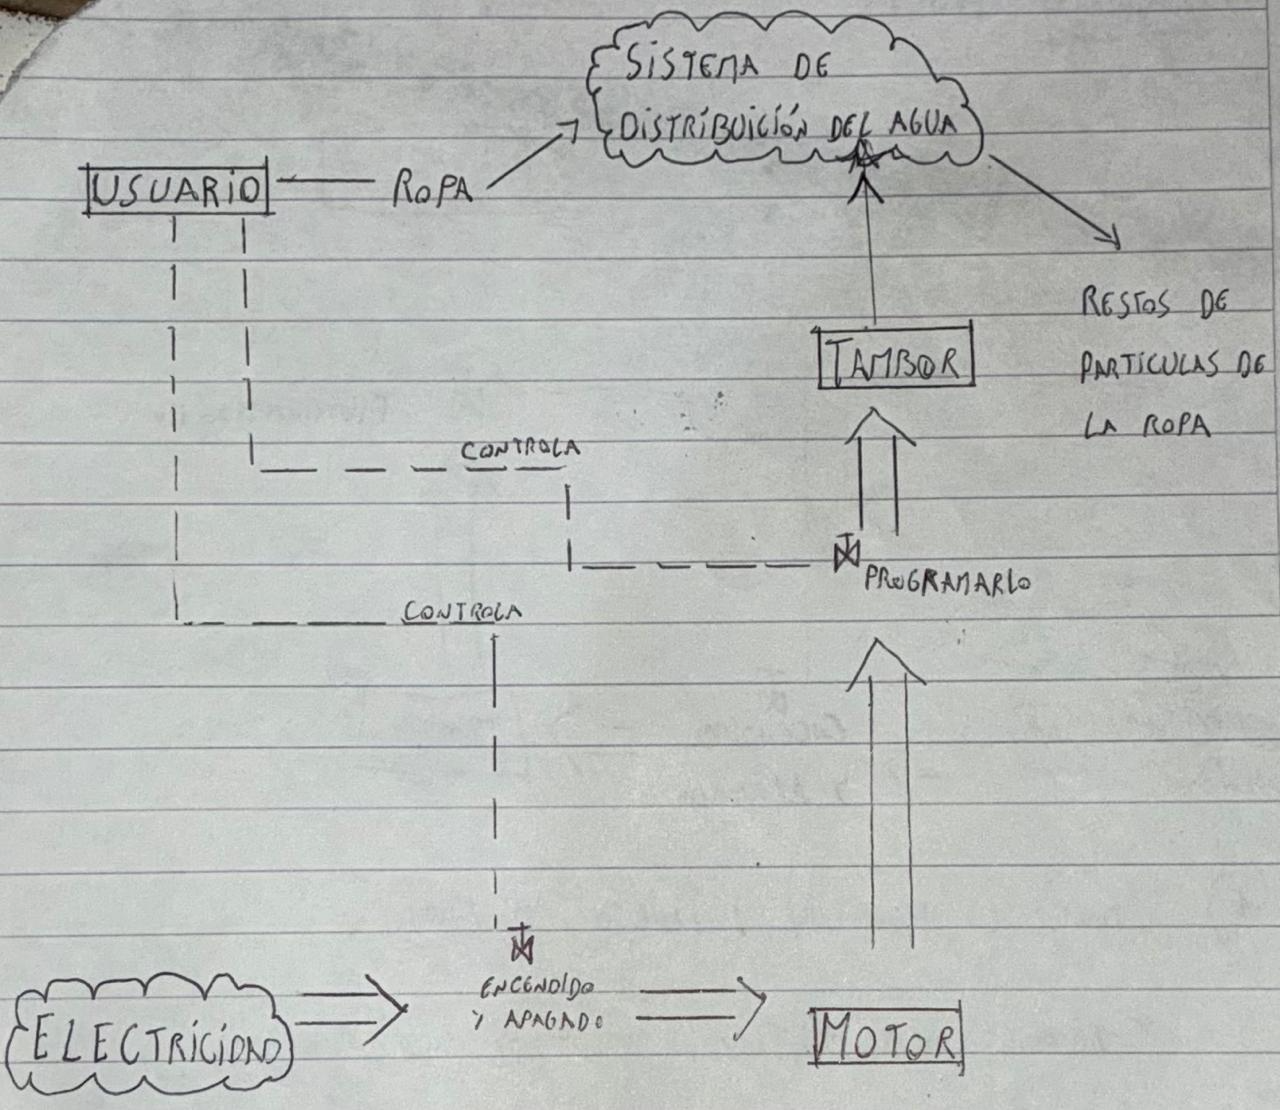 SISTEMA DE
DISTRIBUICIÓN DEL AGUA
USUARIO
ROPA
RESTOS DE
PARTICULAS DE
LA ROPA
TAMBOR
CONTROLA
PROGRAMARLO
CONTROLA
ENCENDIDO
Y APAGADO
ELECTRICIDAD
MOTOR